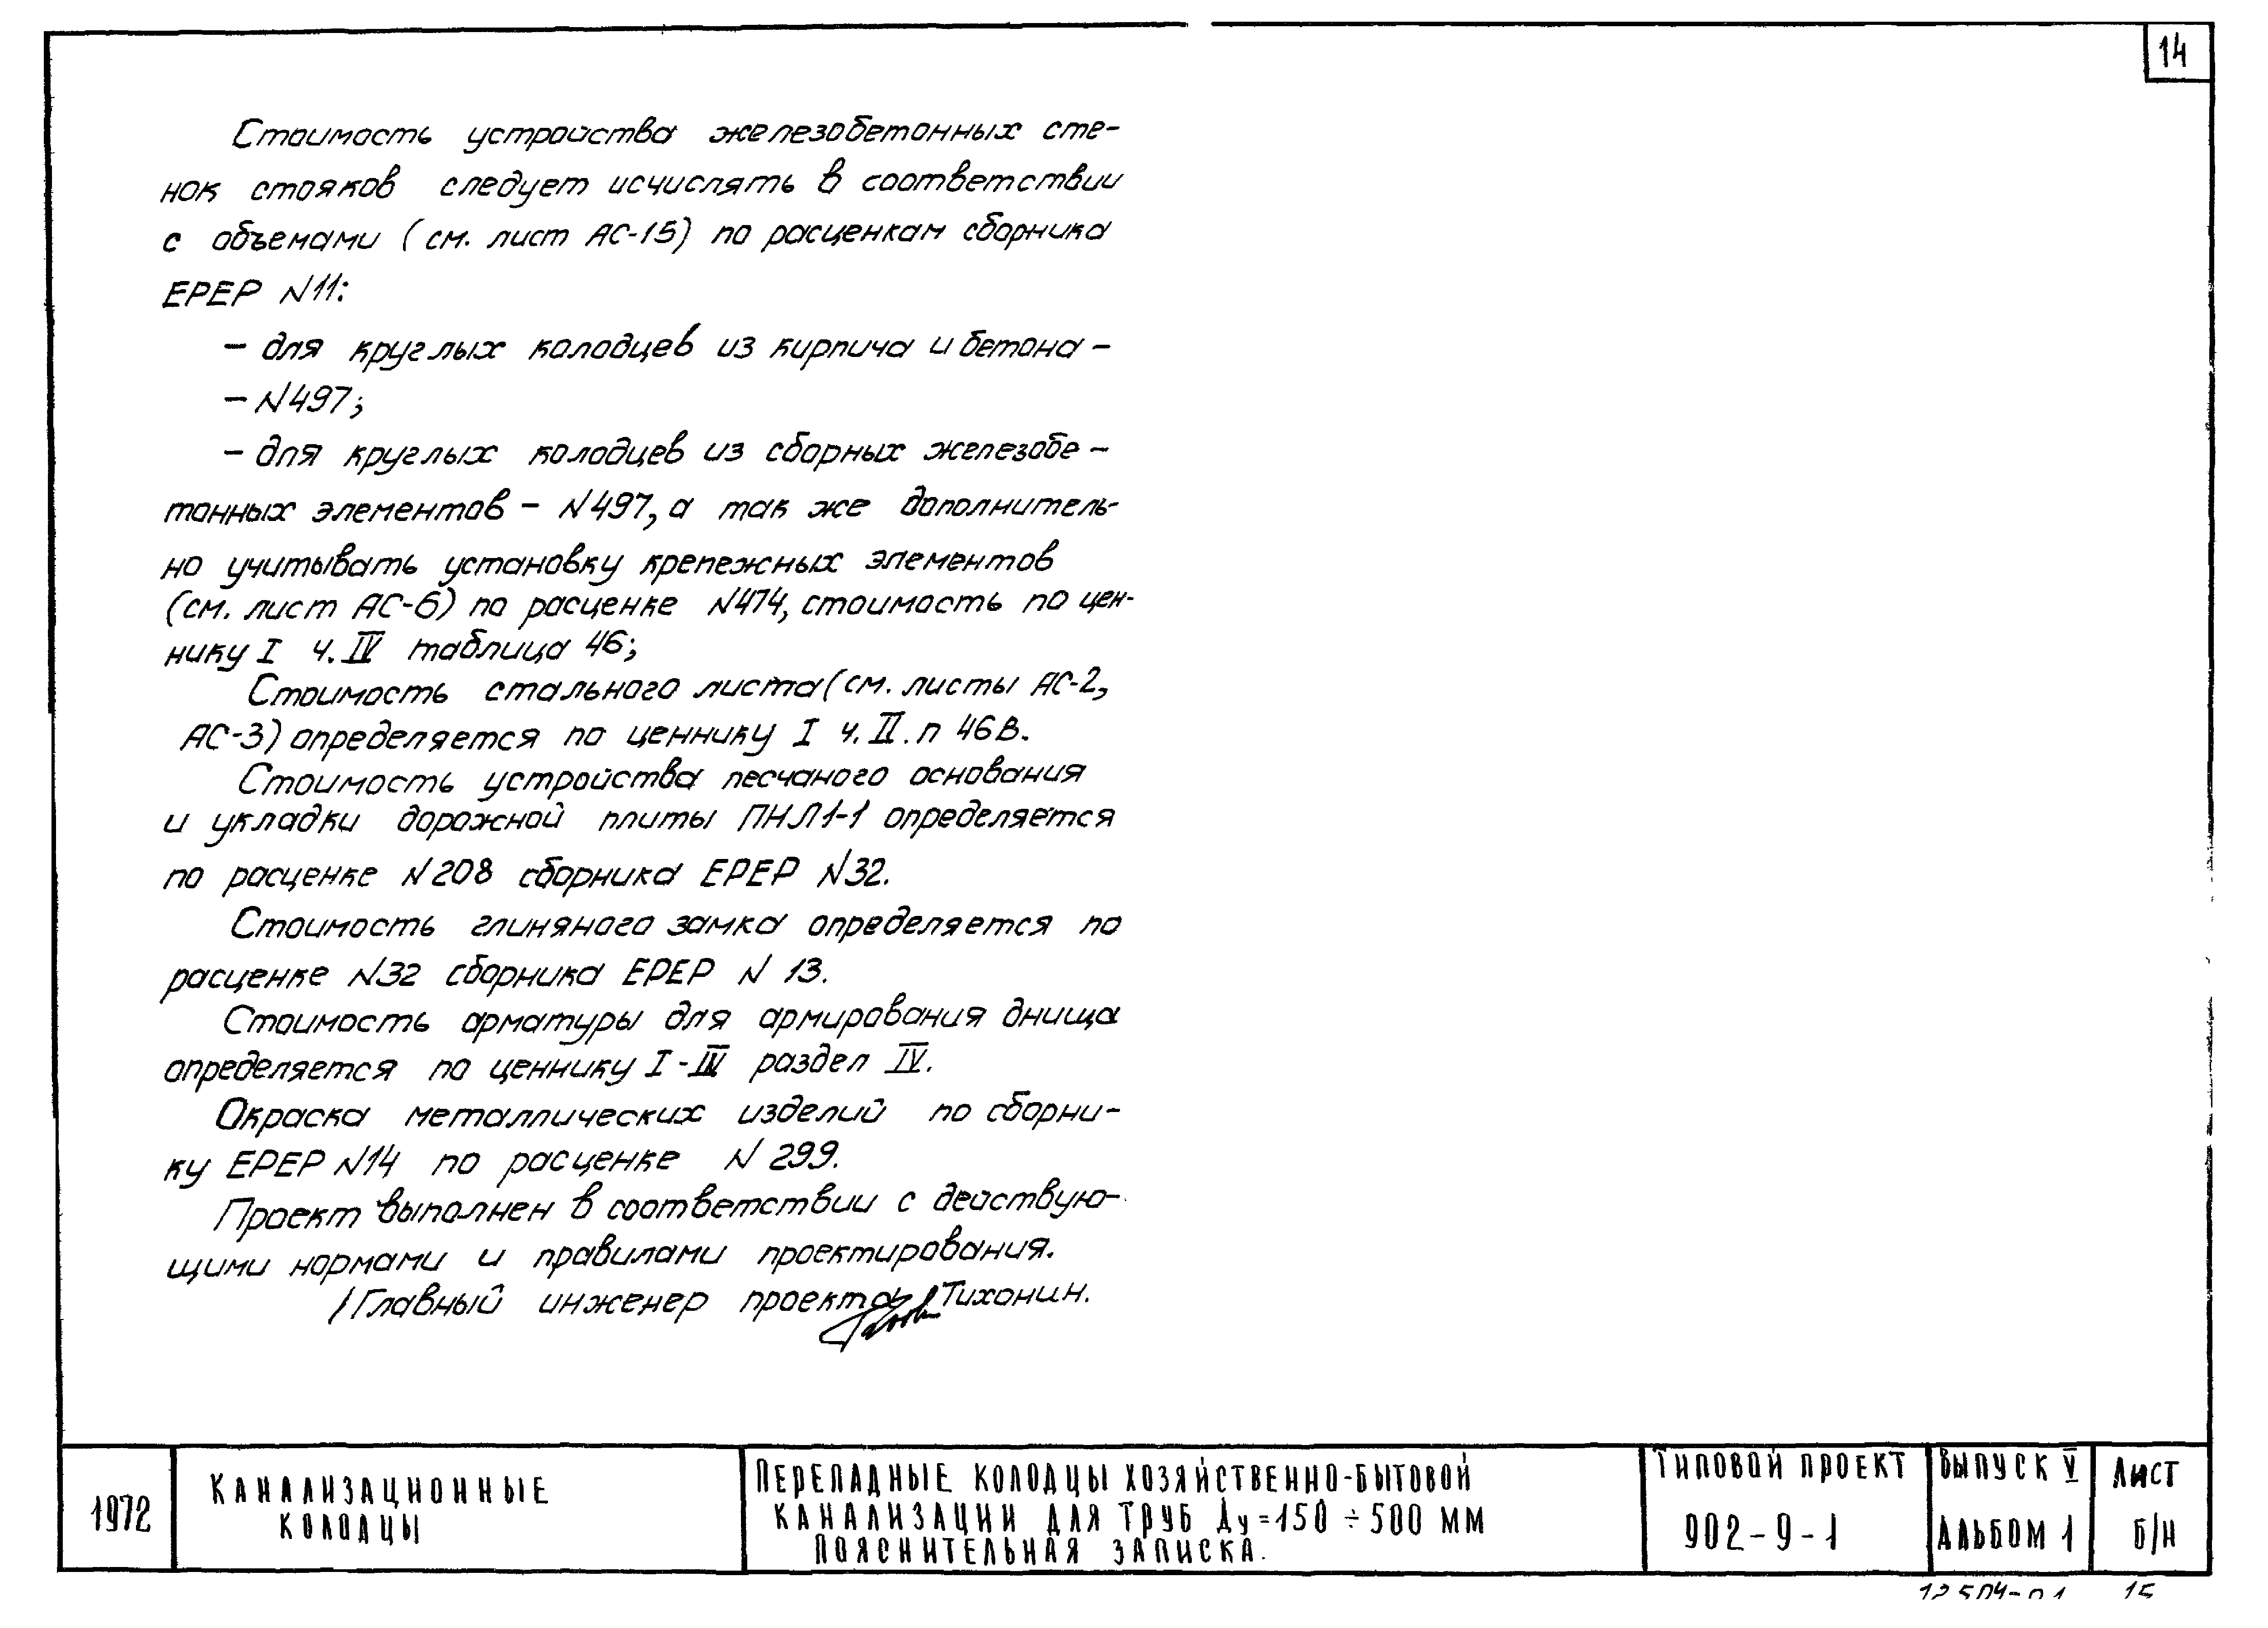 14
Стоимость устройства железобетонных сте-
нок стояков следует исчислять в соответствии
с объемами (см. лист АС-15) по расценкам сборника
ЕРЕР N11:
– для круглых колодцев из кирпича и бетона –
– N497;
– для круглых колодцев из сборных железобе-
тонных элементов – N497, а так же дополнитель-
но учитывать установку крепежных элементов
(см. лист АС-6) по расценке N474, стоимость по цен-
нику I ч. IV таблица 46;
Стоимость стального листа (см. листы АС-2,
АС-3) определяется по ценнику I ч. II. п 46В.
Стоимость устройства песчаного основания
и укладки дорожной плиты ПНЛ1-1 определяется
по расценке N208 сборника ЕРЕР N32.
Стоимость глиняного замка определяется по
расценке N32 сборника ЕРЕР N 13.
Стоимость арматуры для армирования днища
определяется по ценнику I-III раздел IV.
Окраска металлических изделий по сборни-
ку ЕРЕР N14 по расценке N 299.
Проект выполнен в соответствии с действую-
щими нормами и правилами проектирования.
/Главный инженер проекта Тихонин.
1972
КАНАЛИЗАЦИОННЫЕ
КОЛОДЦЫ
ПЕРЕПАДНЫЕ КОЛОДЦЫ ХОЗЯЙСТВЕННО-БЫТОВОЙ
КАНАЛИЗАЦИИ ДЛЯ ТРУБ Ду=150÷500 ММ
ПОЯСНИТЕЛЬНАЯ ЗАПИСКА.
ТИПОВОЙ ПРОЕКТ
902-9-1
ВЫПУСК V
АЛЬБОМ 1
ЛИСТ
Б/Н
12504-01 15